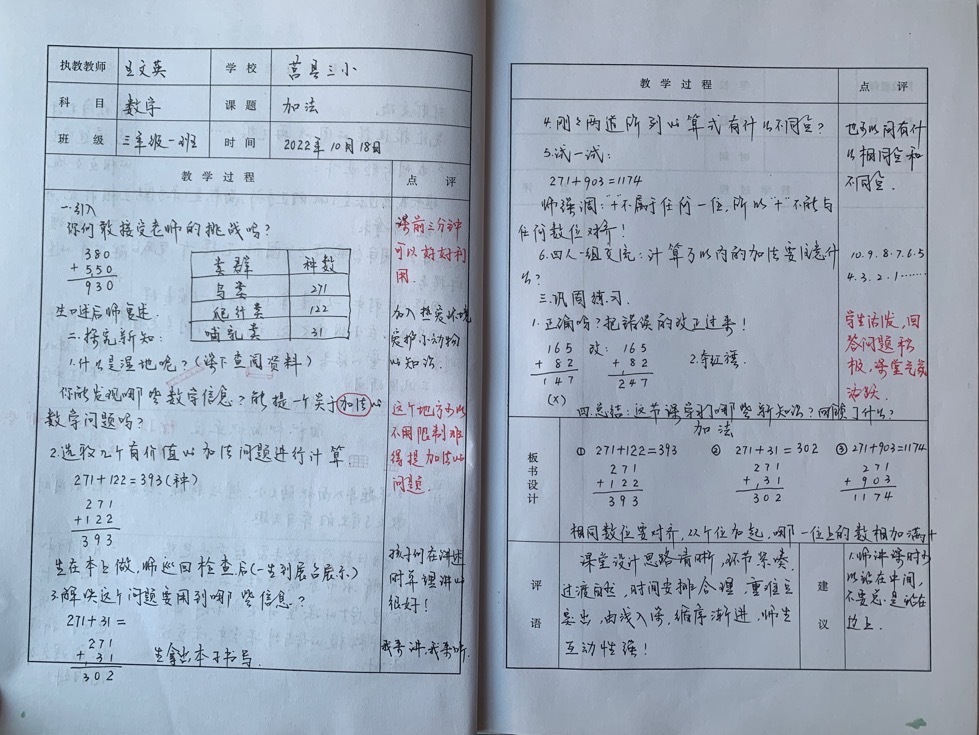 执教教师 王文英 学校 莒县三小
科目 数学 课题 加法
班级 三年级一班 时间 2022年10月18日
教学过程 点评
一.引入
你们敢接受老师的挑战吗?
380
+550
930
类群 种数
鸟类 271
爬行类 122
哺乳类 31
生口述后师复述.
二.探究新知:
1.什么是湿地呢?(课下查阅资料)
你能发现哪些数学信息?能提一个关于加法的
数学问题吗?
2.选取几个有价值的加法问题进行计算.
271+122=393(种)
271
+122
393
生在本上做,师巡回检查后(一生到展台展示)
3.解决这个问题要用到哪些信息?
271+31=
271
+31
302
生拿出本子书写.
课前三分钟
可以好好利
用.
加入热爱环境
爱护小动物
的知识.
这个地方可以
不用限制难
得提加法的
问题.
孩子们在讲述
时算理讲的
很好!
我来讲,我来听.
教学过程 点评
4.刚才两道所列的算式有什么不同点?
5.试一试:
271+903=1174
师强调:+不属于任何一位,所以"+"不能与
任何数位对齐!
6.四人一组交流:计算万以内的加法要注意什
么?
三.巩固练习.
1.正确吗?把错误的改正过来!
165
+82
147
(×)
改:165
+82
247
2.夺红旗.
四.总结:这节课学到哪些新知识?回顾了什么?
也可以问有什
么相同点和
不同点.
10.9.8.7.6.5
4.3.2.1……
学生活泼,回
答问题积
极,课堂气氛
活跃.
板书设计
加法
① 271+122=393 ② 271+31=302 ③ 271+903=1174
271
+122
393
271
+31
302
271
+903
1174
相同数位要对齐,从个位加起,哪一位上的数相加满十
评语
课堂设计思路清晰,环节紧凑,
过渡自然,时间安排合理,重难点
突出,由浅入深,循序渐进,师生
互动性强!
建议
1.师讲课时可
以站在中间,
不要总是站在
边上.